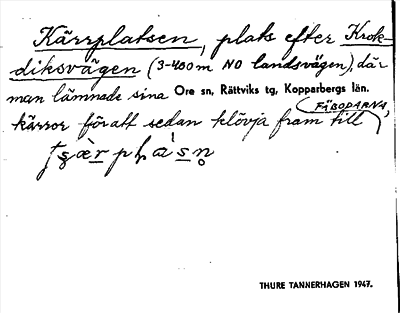 Kärrplatsen, plats efter Krok-
diksvägen (3-400 m NO landsvägen), där
man lämnade sina Ore sn, Rättviks tg, Kopparbergs län.
kärror för att sedan klövja fram till FÄBODARNA,
THURE TANNERHAGEN 1947.